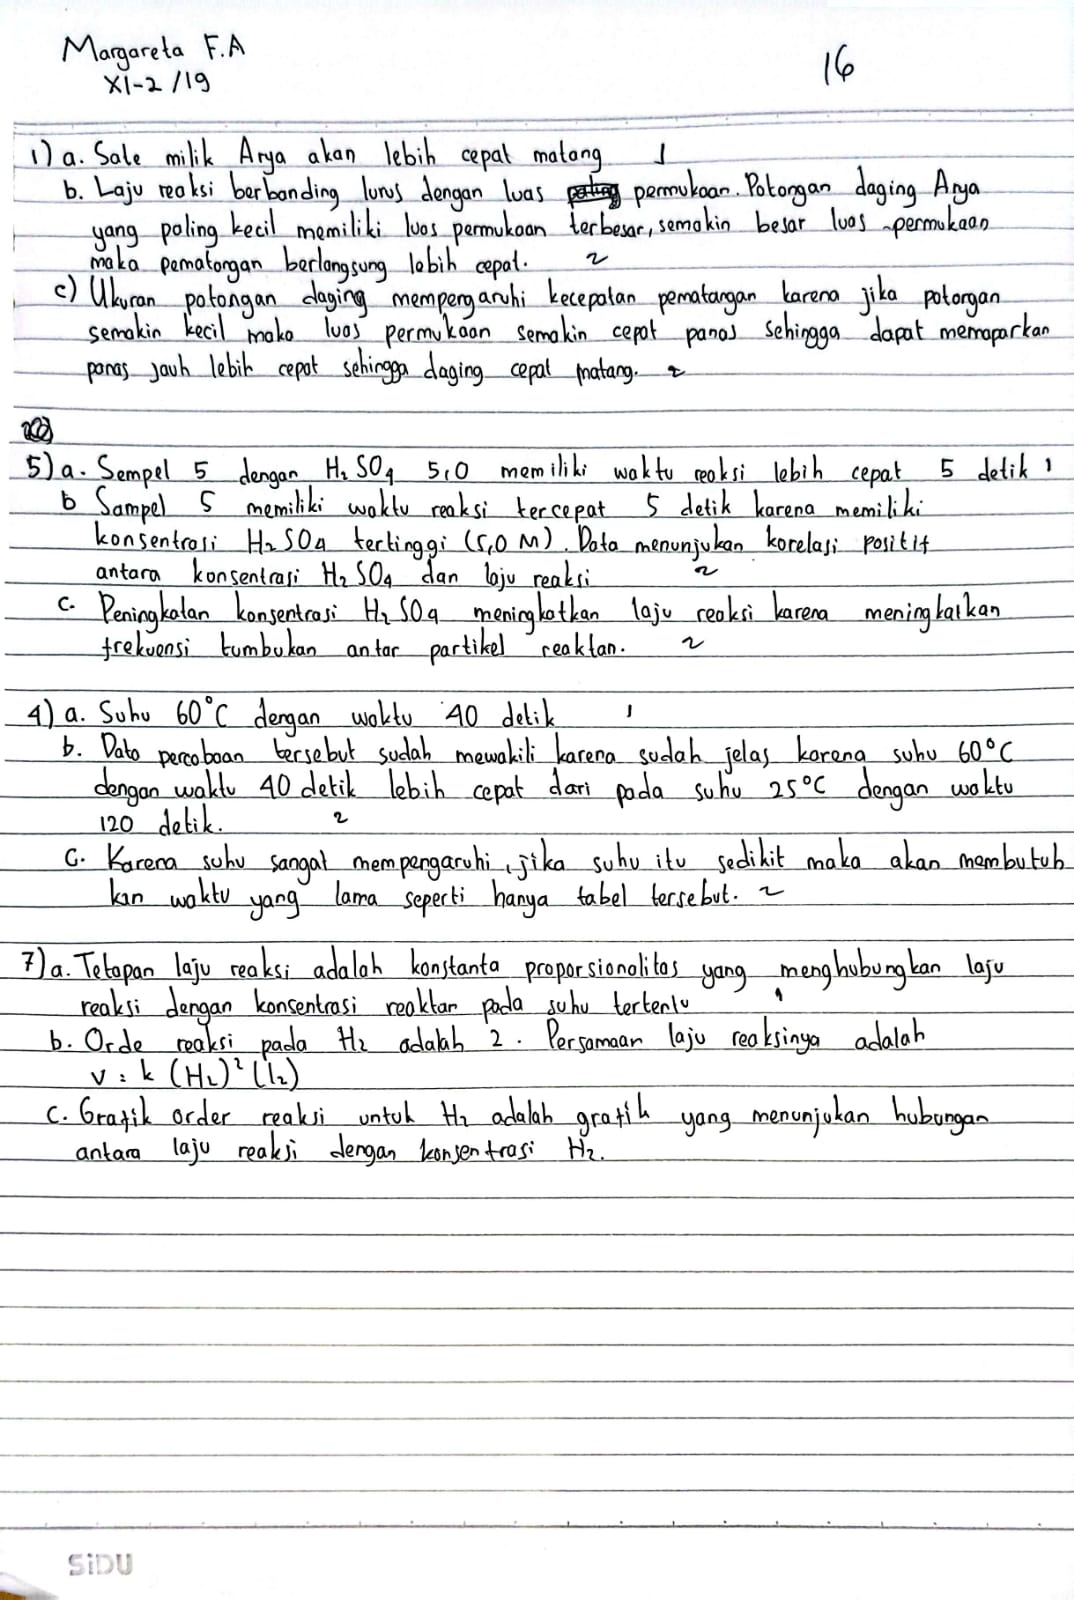 Margareta F.A
XI-2 /19
16
1) a. Sate milik Arya akan lebih cepat matang 1
b. Laju reaksi berbanding lurus dengan luas permukaan. Potongan daging Arya
yang paling kecil memiliki luas permukaan terbesar, semakin besar luas permukaan
maka pematangan berlangsung lebih cepat. 2
c) Ukuran potongan daging mempengaruhi kecepatan pematangan karena jika potongan
semakin kecil maka luas permukaan semakin cepat panas sehingga dapat memaparkan
panas jauh lebih cepat sehingga daging cepat matang. 2
5) a. Sempel 5 dengan H₂SO₄ 5,0 memiliki waktu reaksi lebih cepat 5 detik 1
b Sampel 5 memiliki waktu reaksi tercepat 5 detik karena memiliki
konsentrasi H₂SO₄ tertinggi (5,0 M). Data menunjukan korelasi positif
antara konsentrasi H₂SO₄ dan laju reaksi 2
c. Peningkatan konsentrasi H₂SO₄ meningkatkan laju reaksi karena meningkatkan
frekuensi tumbukan antar partikel reaktan. 2
4) a. Suhu 60°C dengan waktu 40 detik 1
b. Data percobaan tersebut sudah mewakili karena sudah jelas karena suhu 60°C
dengan waktu 40 detik lebih cepat dari pada suhu 25°C dengan waktu
120 detik. 2
C. Karena suhu sangat mempengaruhi, jika suhu itu sedikit maka akan membutuh
kan waktu yang lama seperti hanya tabel tersebut. 2
7) a. Tetapan laju reaksi adalah konstanta proporsionalitas yang menghubungkan laju
reaksi dengan konsentrasi reaktan pada suhu tertentu 1
b. Orde reaksi pada H₂ adalah 2. Persamaan laju reaksinya adalah
v = k (H₂)² (I₂)
c. Grafik order reaksi untuk H₂ adalah grafik yang menunjukan hubungan
antara laju reaksi dengan konsentrasi H₂.
SiDU